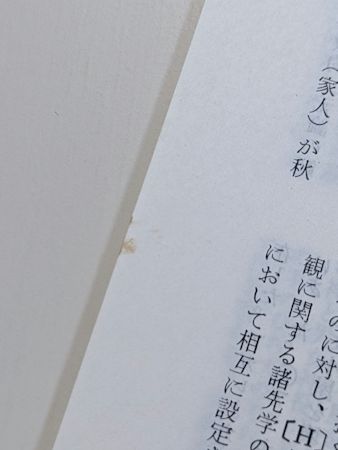 （家人）が秋
のに対し、〔H〕
観に関する諸先学の
において相互に設定